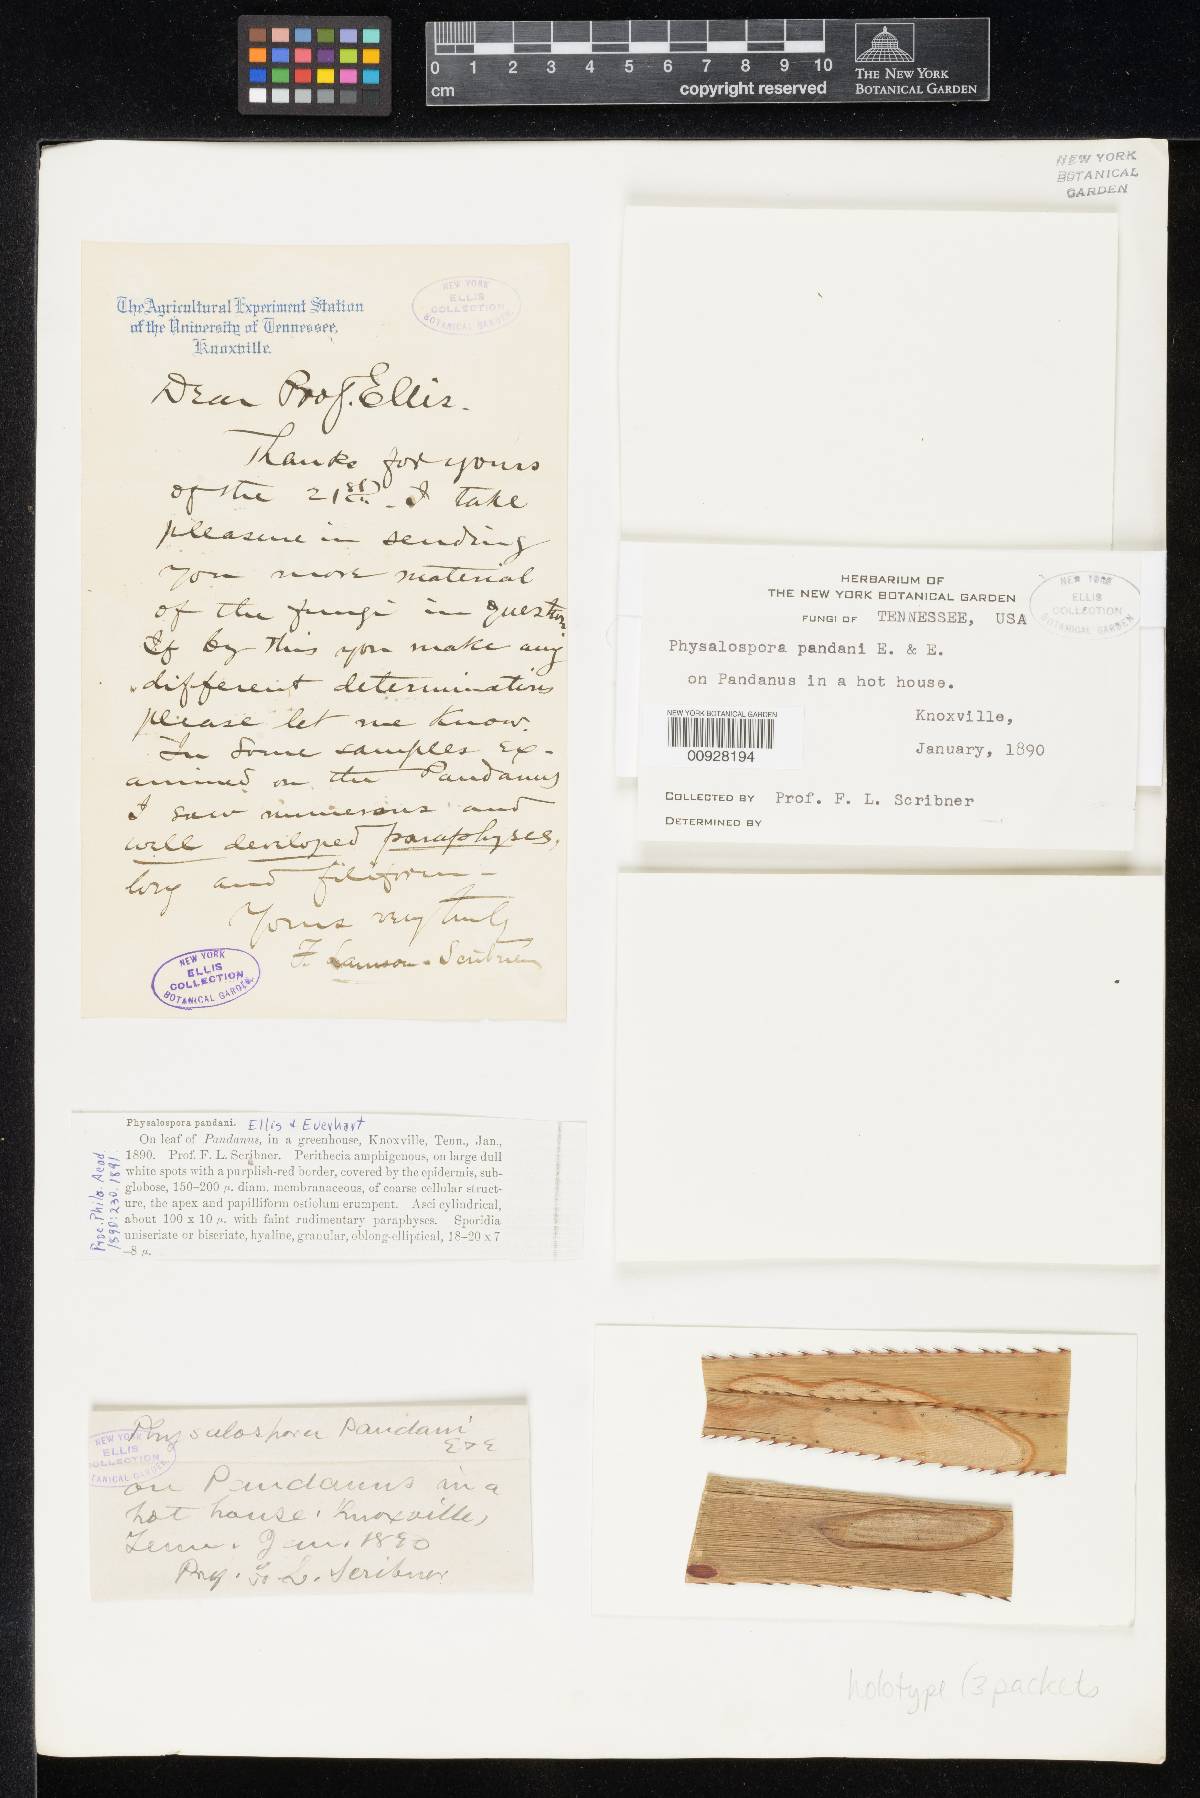 0 1 2 3 4 5 6 7 8 9 10
cm
copyright reserved
THE NEW YORK
BOTANICAL GARDEN
NEW YORK
BOTANICAL
GARDEN
The Agricultural Experiment Station
of the University of Tennessee,
Knoxville.
NEW YORK
ELLIS
COLLECTION
BOTANICAL GARDEN
Dear Prof. Ellis.
Thanks for yours
of the 21st. I take
pleasure in sending
you more material
of the fungi in question.
If by this you make any
different determinations
please let me know.
In some samples ex-
amined on the Pandanus
I saw numerous and
well developed paraphyses,
long and filiform -
Yours very truly
F. Lamson-Scribner
NEW YORK
ELLIS
COLLECTION
BOTANICAL GARDEN
HERBARIUM OF
THE NEW YORK BOTANICAL GARDEN
FUNGI OF TENNESSEE, USA
NEW YORK
ELLIS
COLLECTION
BOTANICAL GARDEN
Physalospora pandani E. & E.
on Pandanus in a hot house.
NEW YORK BOTANICAL GARDEN
00928194
Knoxville,
January, 1890
COLLECTED BY Prof. F. L. Scribner
DETERMINED BY
Physalospora pandani. Ellis & Everhart
On leaf of Pandanus, in a greenhouse, Knoxville, Tenn., Jan.,
1890. Prof. F. L. Scribner. Perithecia amphigenous, on large dull
white spots with a purplish-red border, covered by the epidermis, sub-
globose, 150–200 µ. diam, membranaceous, of coarse cellular struct-
ure, the apex and papilliform ostiolum erumpent. Asci cylindrical,
about 100 x 10 µ. with faint rudimentary paraphyses. Sporidia
uniseriate or biseriate, hyaline, granular, oblong-elliptical, 18–20 x 7
–8 µ.
Proc. Phila. Acad.
1890:230. 1891.
Physalospora Pandani
E & E
NEW YORK
ELLIS
COLLECTION
BOTANICAL GARDEN
on Pandanus in a
hot house. Knoxville,
Tenn. Jan. 1890
Prof. F. L. Scribner
holotype (3 packets